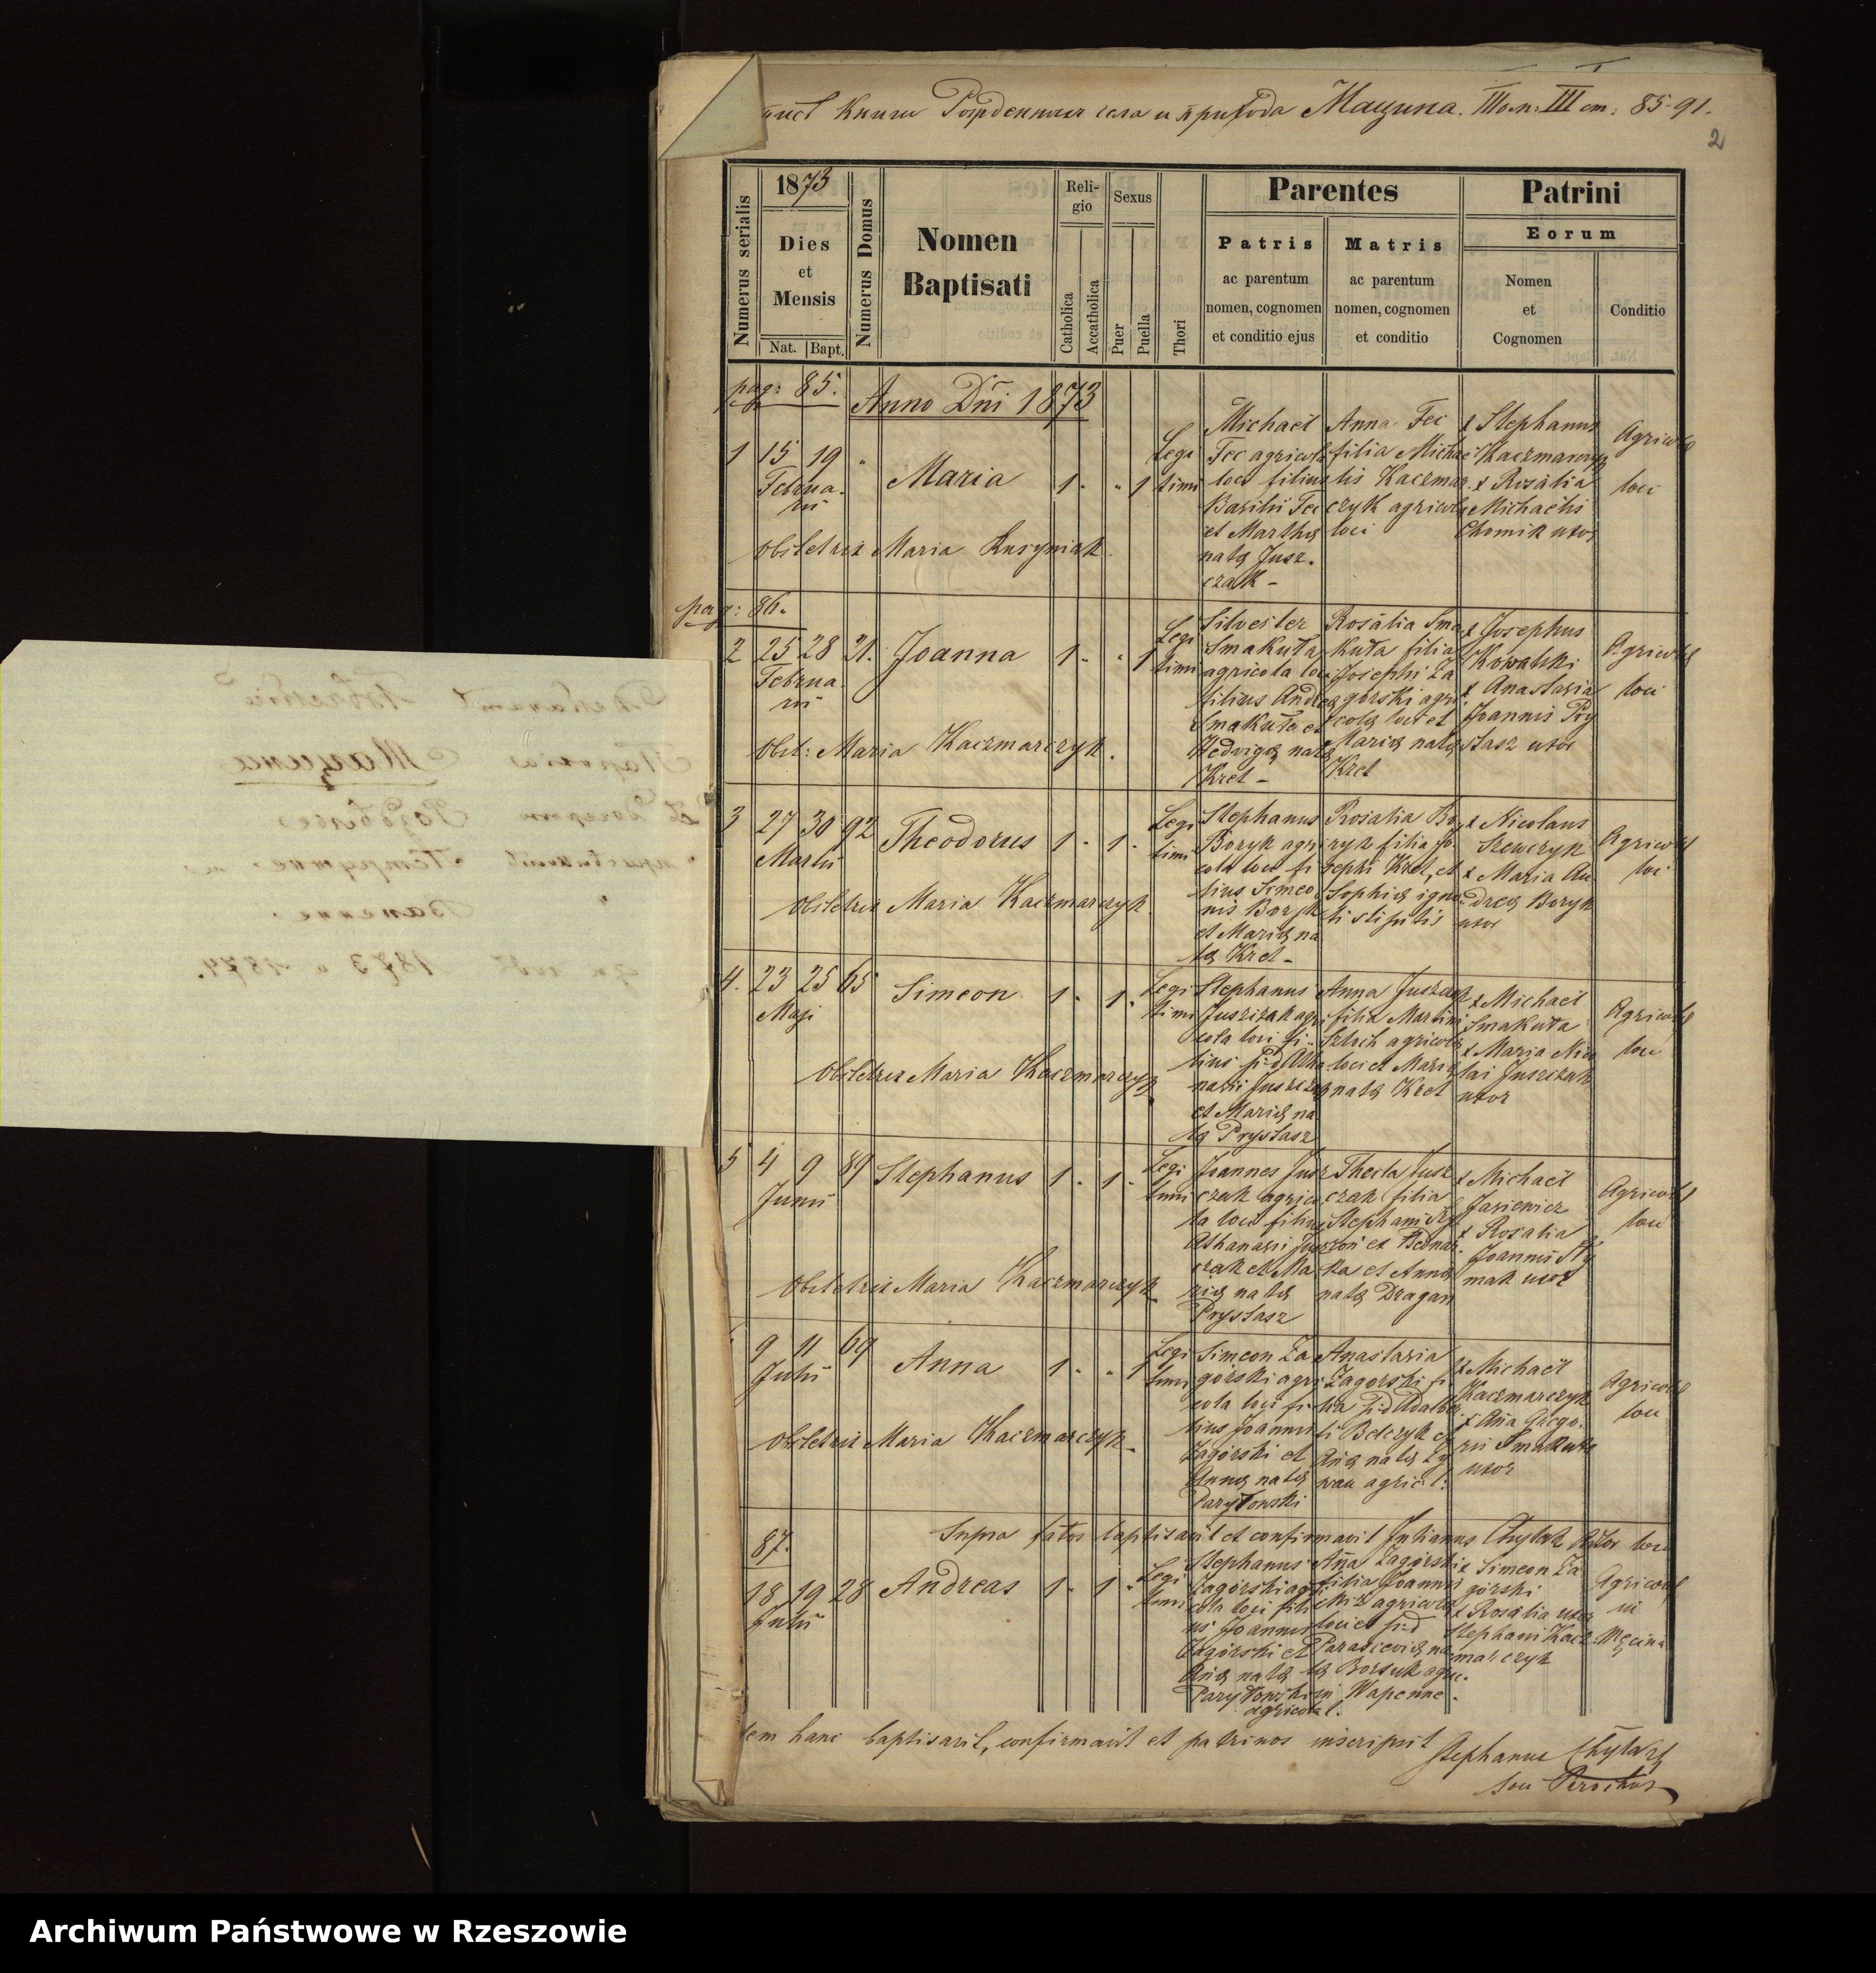 Книги села и прихода Мацына. III ст: 85-91.
2
Numerus serialis
1873
Dies
et
Mensis
Nat. Bapt.
Numerus Domus
Nomen
Baptisati
Reli-
gio
Catholica
Accatholica
Sexus
Puer
Puella
Thori
Parentes
Patris
ac parentum
nomen, cognomen
et conditio ejus
Matris
ac parentum
nomen, cognomen
et conditio
Patrini
Eorum
Nomen
et
Cognomen
Conditio
pag: 85. Anno Dñi 1873
1 15 19 "
Februa
rii
Maria
1 - " 1
Legi
timi
Michaël
Fec agricola
loci filius
Basilii Fec
et Marthę
natę Jusz-
czak -
Anna Fec
filia Michaë
lis Kaczmar
czyk agricolę
loci
x Stephanus
Kaczmarczyk
x Rosalia
Michaelis
Chomik uxor
Agricolę
loci
Obstetrix Maria
pag: 86.
2 25 28 21.
Februa
rii
Joanna
1 - " 1
Legi
timi
Silvester
Smakuła
agricola loci
filius Andreę
Smakuła et
Hedvigę natę
Kret -
Rosalia Sma
kuła filia
Josephi Za
górski agri
colę loci et
Marię natę
Kret
x Josephus
Kowalski
x Anastasia
Joannis Pry
stasz uxor
Agricolę
loci
Obst: Maria Kaczmarczyk.
3 27 30 92
Martii
Theodorus
1 - 1 -
Legi
timi
Stephanus
Boryk agri
cola loci fi
lius Simeo
nis Boryk
et Marię na
tę Kret -
Rosalia Bo
ryk filia Jo
sephi Kret, et
Sophię igno
ti stipitis
x Nicolaus
Szewczyk
x Maria An
dreę Boryk
uxor
Agricolę
loci
Obstetrix Maria Kaczmarczyk
4. 23 25 65
Maji
Simeon
1 - 1 -
Legi
timi
Stephanus
Juszczak agri
cola loci fi-
lius p:d Atha
nasii Juszczak
et Marię na
tę Prystasz
Anna Juszczak
filia Martini
Szloch agricolę
loci et Marię
natę Kret
x Michaël
Smakuła
x Maria Nico
lai Juszczak
uxor
Agricolę
loci
Obstetrix Maria Kaczmarczyk
5 4 9 89
Junii
Stephanus
1 - 1 -
Legi
timi
Joannes Jusz
czak agrico
la loci filius
Athanasii Jusz
czak et Ma
rię natę
Prystasz
Thecla Jusz
czak filia
Stephani
et
ka et Annę
natę Dragan
x Michaël
Jasiewicz
x Rosalia
Joannis
mak uxor
Agricolę
loci
Obstetrix Maria Kaczmarczyk
9 11 69
Julii
Anna
1 - " 1
Legi
timi
Simeon Za
górski agri
cola loci fi
lius Joannis
Zagórski et
Annę natę
Paryłowski
Anastasia
Zagorski fi
lia p:d Adalber
ti Belczyk et
Añę natę
agric:l:
x Michaël
Kaczmarczyk
x Añia Grego
rii Smakuła
uxor
Agricolę
loci
Obstetrix Maria Kaczmarczyk
87. Supra fatos baptisavit et confirmavit Julianus Chylak loci
18 19 28
Julii
Andreas
1 - 1 -
Legi
timi
Stephanus
Zagórski agri
cola loci fili
us Joannis
Zagórski et
Añę natę
Paryłowski
agricola l.
Aña Zagórski
filia Joannis
agricolę
loci et p:d
Parascevię na
tę Borsuk agric.
in Wapenne.
x Simeon Za
górski
x Rosalia uxor
Stephani Kacz
marczyk
Agricolę
in
Męcina
hanc baptisavit, confirmavit et patrinos inscripsit Stephanus Chylak
loci Parochus
Мацына
1873 и 1874.
Archiwum Państwowe w Rzeszowie